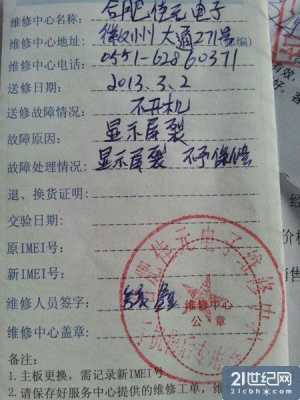 维修中心名称: 合肥佳元电子
维修中心地址: 徽州大道271号
维修中心电话: 0551-62860371
送修日期: 2013.3.2
送修故障情况: 不开机
故障原因: 显示屏裂
故障处理情况: 显示屏裂 不予保修
退、换货证明:
交验日期:
原IMEI号:
新IMEI号:
维修人员签字:
维修中心盖章:
维修中心
公章
备注:
1.主板更换,需记录新IMEI号
2.请保存好服务中心提供的维修工单,维
21世纪网
21cbh.com